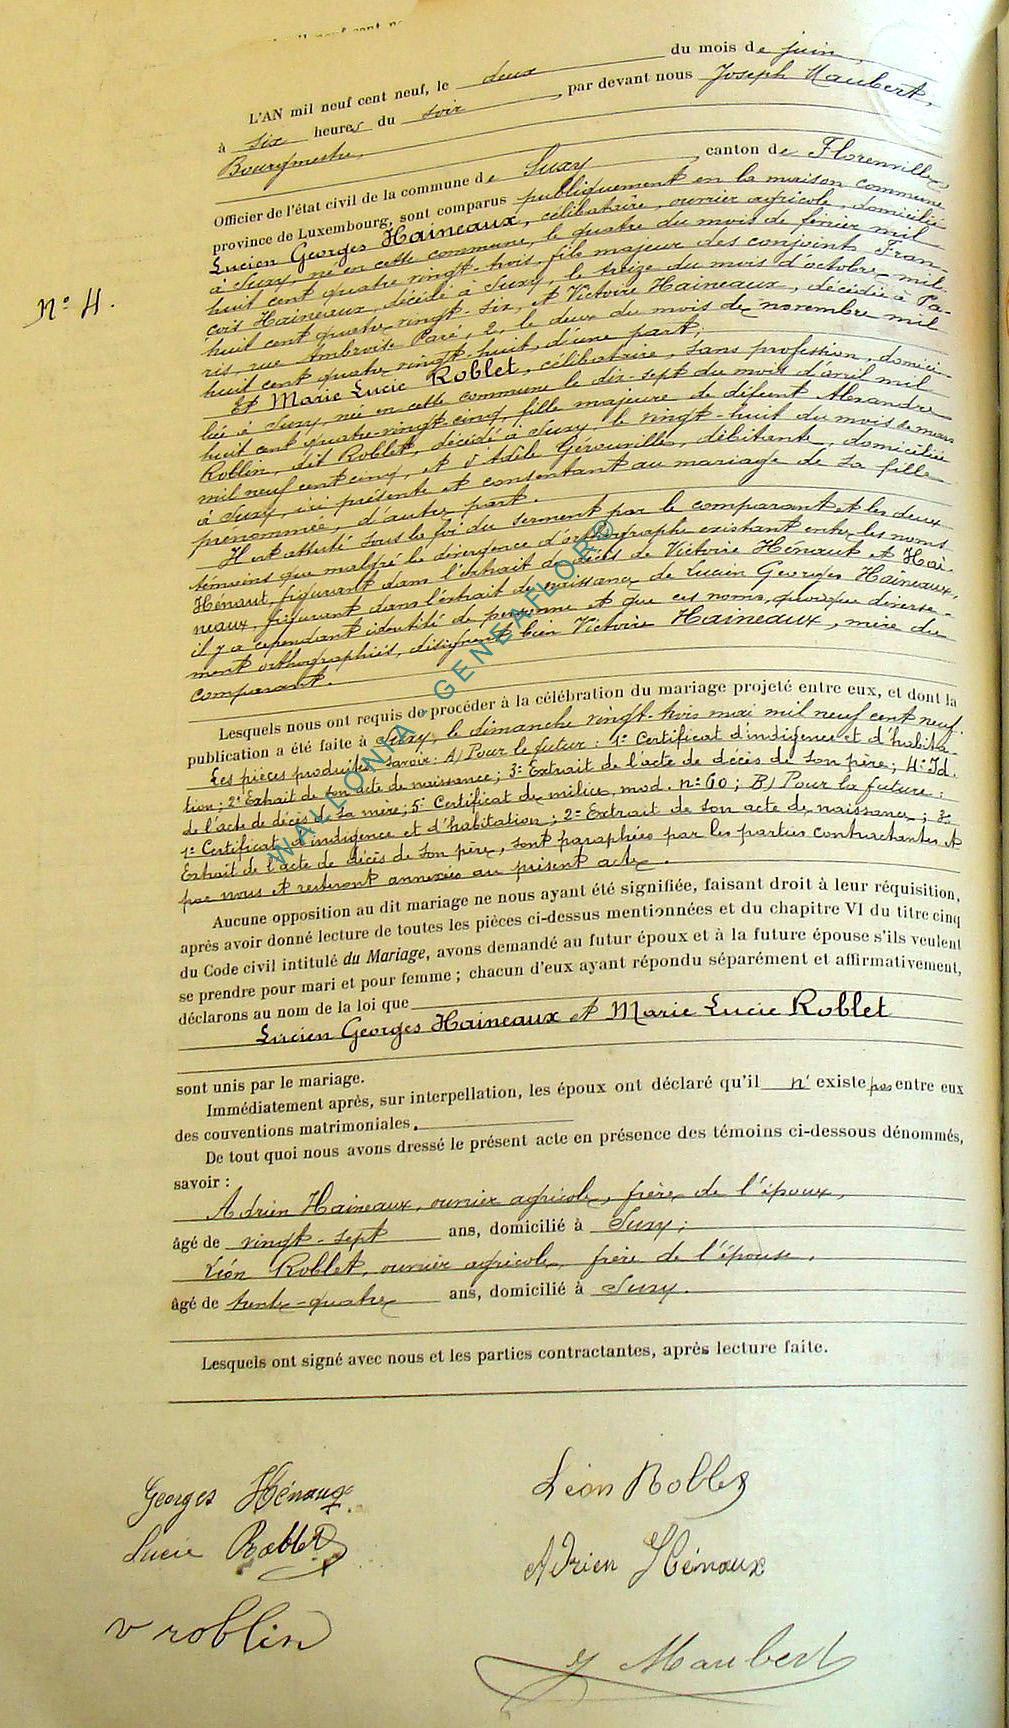 L'AN mil neuf cent neuf, le deux du mois de juin,
à six heures du soir, par devant nous Joseph Maubert,
Bourgmestre,
Officier de l'état civil de la commune de Suxy, canton de Florenville
province de Luxembourg, sont comparus publiquement en la maison commune
Lucien Georges Haineaux, célibataire, ouvrier agricole, domicilié
à Suxy, né en cette commune, le quatre du mois de février mil
huit cent quatre vingt-trois, fils majeur des conjoints Fran-
çois Haineaux, décédé à Suxy, le treize du mois d'octobre mil
huit cent quatre vingt-six, et Victoire Haineaux, décédée à Pa-
ris, rue Ambroise Paré, 2, le deux du mois de novembre mil
huit cent quatre vingt-huit, d'une part;
Et Marie Lucie Roblet, célibataire, sans profession, domici-
liée à Suxy, née en cette commune le dix-sept du mois d'avril mil
huit cent quatre-vingt-cinq, fille majeure de défunt Alexandre
Roblin, dit Roblet, décédé à Suxy, le vingt-huit du mois de mars
mil neuf cent cinq, et d'Adèle Gérouville, débitante, domiciliée
à Suxy, ici présente et consentant au mariage de sa fille
prénommée, d'autre part.
Il est attesté sous la foi du serment par le comparant et les deux
témoins que malgré la divergence d'orthographe existant entre les noms
Hénaut, figurant dans l'extrait de décès de Victoire Hénaut et Hai-
neaux, figurant dans l'extrait de naissance de Lucien Georges Haineaux,
il y a cependant identité de personne et que ces noms, quoique diverse-
ment orthographiés, désignent bien Victoire Haineaux, mère du
comparant.
N° 4.
Lesquels nous ont requis de procéder à la célébration du mariage projeté entre eux, et dont la
publication a été faite à Suxy, le dimanche vingt-trois mai mil neuf cent neuf.
Les pièces produites, savoir: A) Pour le futur: 1° Certificat d'indigence et d'habita-
tion; 2° Extrait de son acte de naissance; 3° Extrait de l'acte de décès de son père; 4° Id.
de l'acte de décès de sa mère; 5° Certificat de milice, mod. n° 60; B) Pour la future:
1° Certificat d'indigence et d'habitation; 2° Extrait de son acte de naissance; 3°
Extrait de l'acte de décès de son père, sont paraphées par les parties contractantes et
par nous et resteront annexées au présent acte.
Aucune opposition au dit mariage ne nous ayant été signifiée, faisant droit à leur réquisition,
après avoir donné lecture de toutes les pièces ci-dessus mentionnées et du chapitre VI du titre cinq
du Code civil intitulé du Mariage, avons demandé au futur époux et à la future épouse s'ils veulent
se prendre pour mari et pour femme; chacun d'eux ayant répondu séparément et affirmativement,
déclarons au nom de la loi que
Lucien Georges Haineaux et Marie Lucie Roblet
sont unis par le mariage.
Immédiatement après, sur interpellation, les époux ont déclaré qu'il n'existe pas entre eux
des conventions matrimoniales.
De tout quoi nous avons dressé le présent acte en présence des témoins ci-dessous dénommés,
savoir:
Adrien Haineaux, ouvrier agricole, frère de l'époux,
âgé de vingt-sept ans, domicilié à Suxy;
Léon Roblet, ouvrier agricole, frère de l'épouse,
âgé de trente-quatre ans, domicilié à Suxy.
Lesquels ont signé avec nous et les parties contractantes, après lecture faite.
Georges Hénaux
Léon Roblet
Lucie Roblet
Adrien Hénaux
v roblin
J Maubert
WALLONIA - GENEAFLOR©